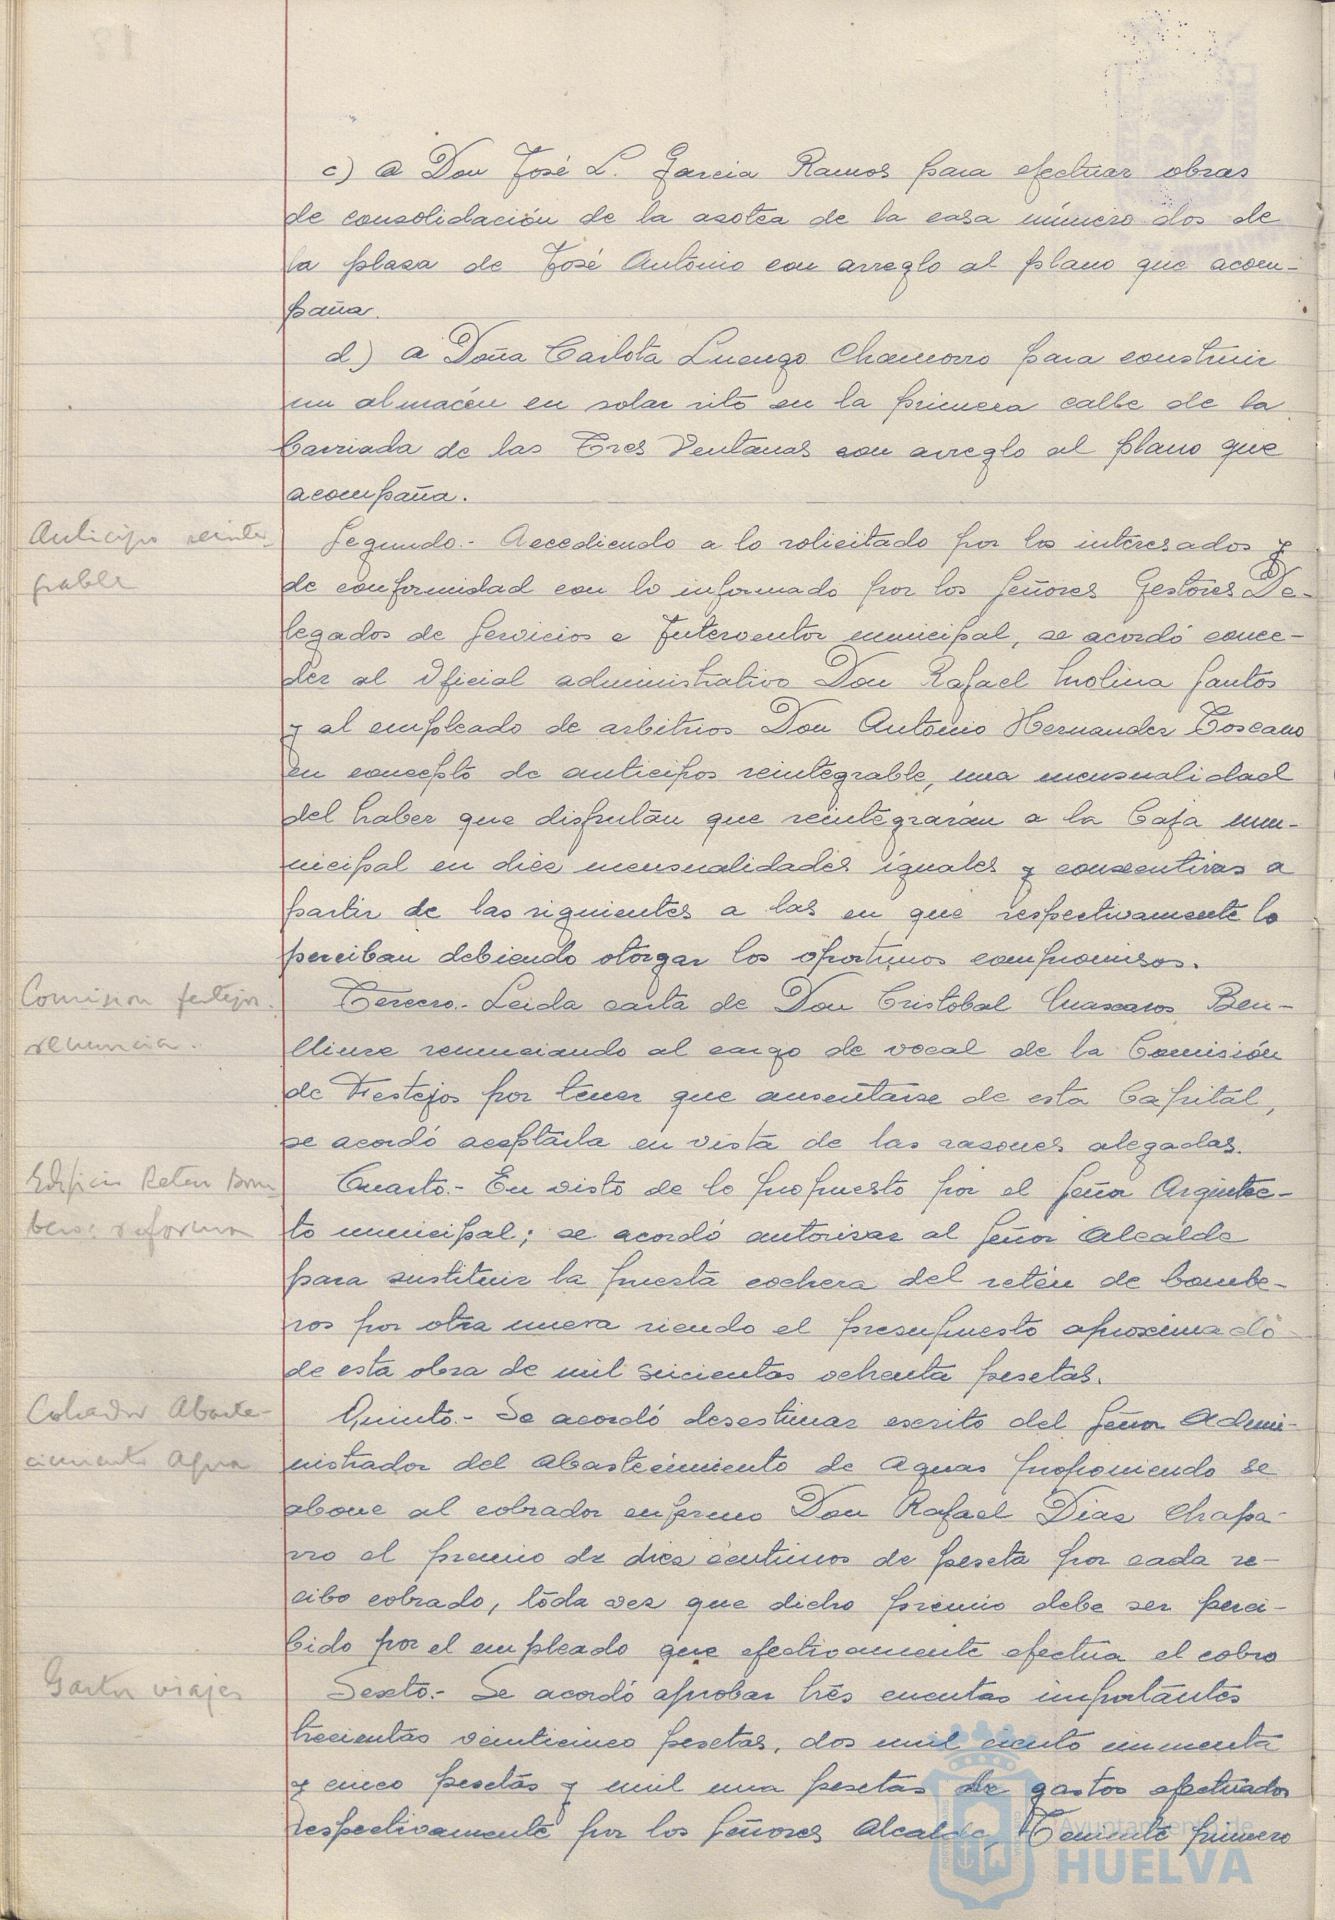 c) a Don José L. Garcia Ramos para efectuar obras
de consolidación de la azotea de la casa número dos de
la plaza de José Antonio con arreglo al plano que acom-
paña.
d) a Doña Carlota Luengo Chamorro para construir
un almacén en solar sito en la primera calle de la
barriada de las Tres Ventanas con arreglo al plano que
acompaña.
Anticipo reinte-
grable
Segundo.- Accediendo a lo solicitado por los interesados y
de conformidad con lo informado por los Señores Gestores De-
legados de Servicios e Interventor municipal, se acordó conce-
der al Oficial administrativo Don Rafael Molina Santos
y al empleado de arbitrios Don Antonio Hernandez Toscano
en concepto de anticipos reintegrable, una mensualidad
del haber que disfrutan que reintegrarán a la Caja mu-
nicipal en diez mensualidades iguales y consecutivas a
partir de las siguientes a las en que respectivamente lo
perciban debiendo otorgar los oportunos compromisos.
Comision festejos.
renuncia.
Tercero.- Leida carta de Don Cristobal Mascaros Ben-
lliure renunciando al cargo de vocal de la Comisión
de Festejos por tener que ausentarse de esta Capital,
se acordó aceptarla en vista de las razones alegadas.
Edificio Reten Bom-
beros reforma
Cuarto.- En visto de lo propuesto por el Señor Arquitec-
to municipal; se acordó autorizar al Señor Alcalde
para sustituir la puerta cochera del retén de bombe-
ros por otra nueva siendo el presupuesto aproximado
de esta obra de mil seicientas ochenta pesetas.
Cobrador Abaste-
cimiento Agua
Quinto.- Se acordó desestimar escrito del Señor Admi-
nistrador del abastecimiento de aguas proponiendo se
abone al cobrador enfermo Don Rafael Diaz Chapa-
rro el premio de diez céntimos de peseta por cada re-
cibo cobrado, toda vez que dicho premio debe ser perci-
bido por el empleado que efectivamente efectua el cobro
Gastos viajes
Sexto.- Se acordó aprobar trés cuentas importantes
trecientas veinticinco pesetas, dos mil ciento
y cinco pesetas y mil una pesetas de gastos efectuados
respectivamente por los Señores Alcalde, Teniente primero
Ayuntamiento de
HUELVA